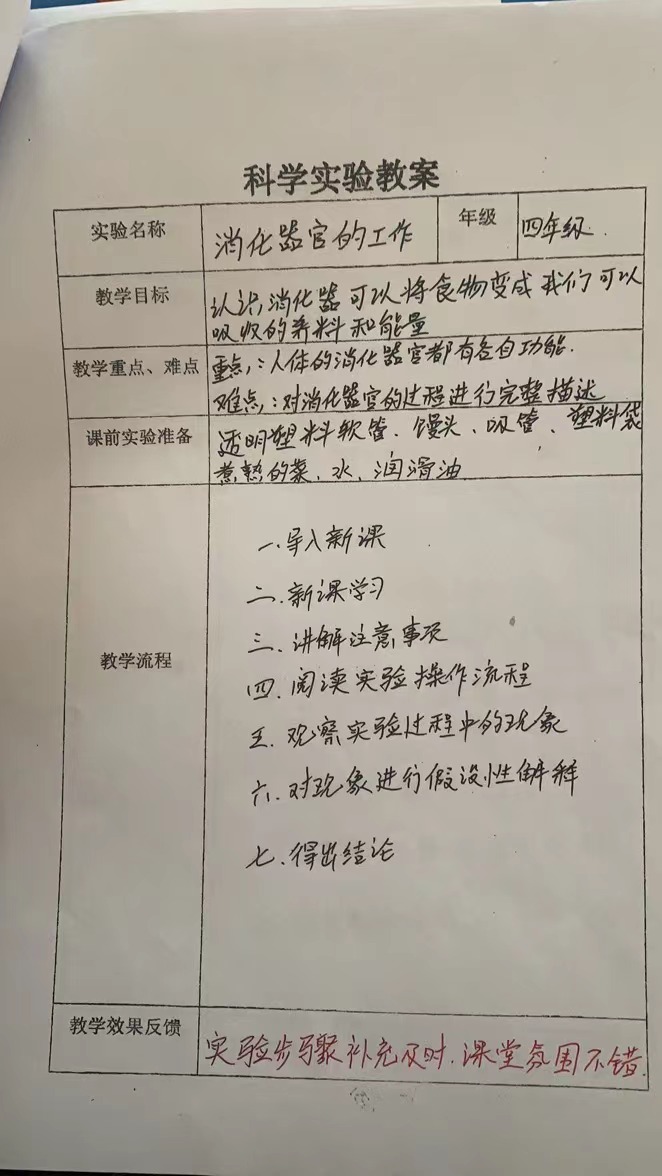 科学实验教案
实验名称 消化器官的工作 年级 四年级.
教学目标 认识消化器可以将食物变成我们可以
吸收的养料和能量
教学重点、难点 重点：人体的消化器官都有各自功能.
难点：对消化器官的过程进行完整描述
课前实验准备 透明塑料软管、馒头、吸管、塑料袋
煮熟的菜、水、润滑油
教学流程
一.导入新课
二.新课学习
三.讲解注意事项
四.阅读实验操作流程
五.观察实验过程中的现象
六.对现象进行假设性解释
七.得出结论
教学效果反馈 实验步骤补充及时.课堂氛围不错.